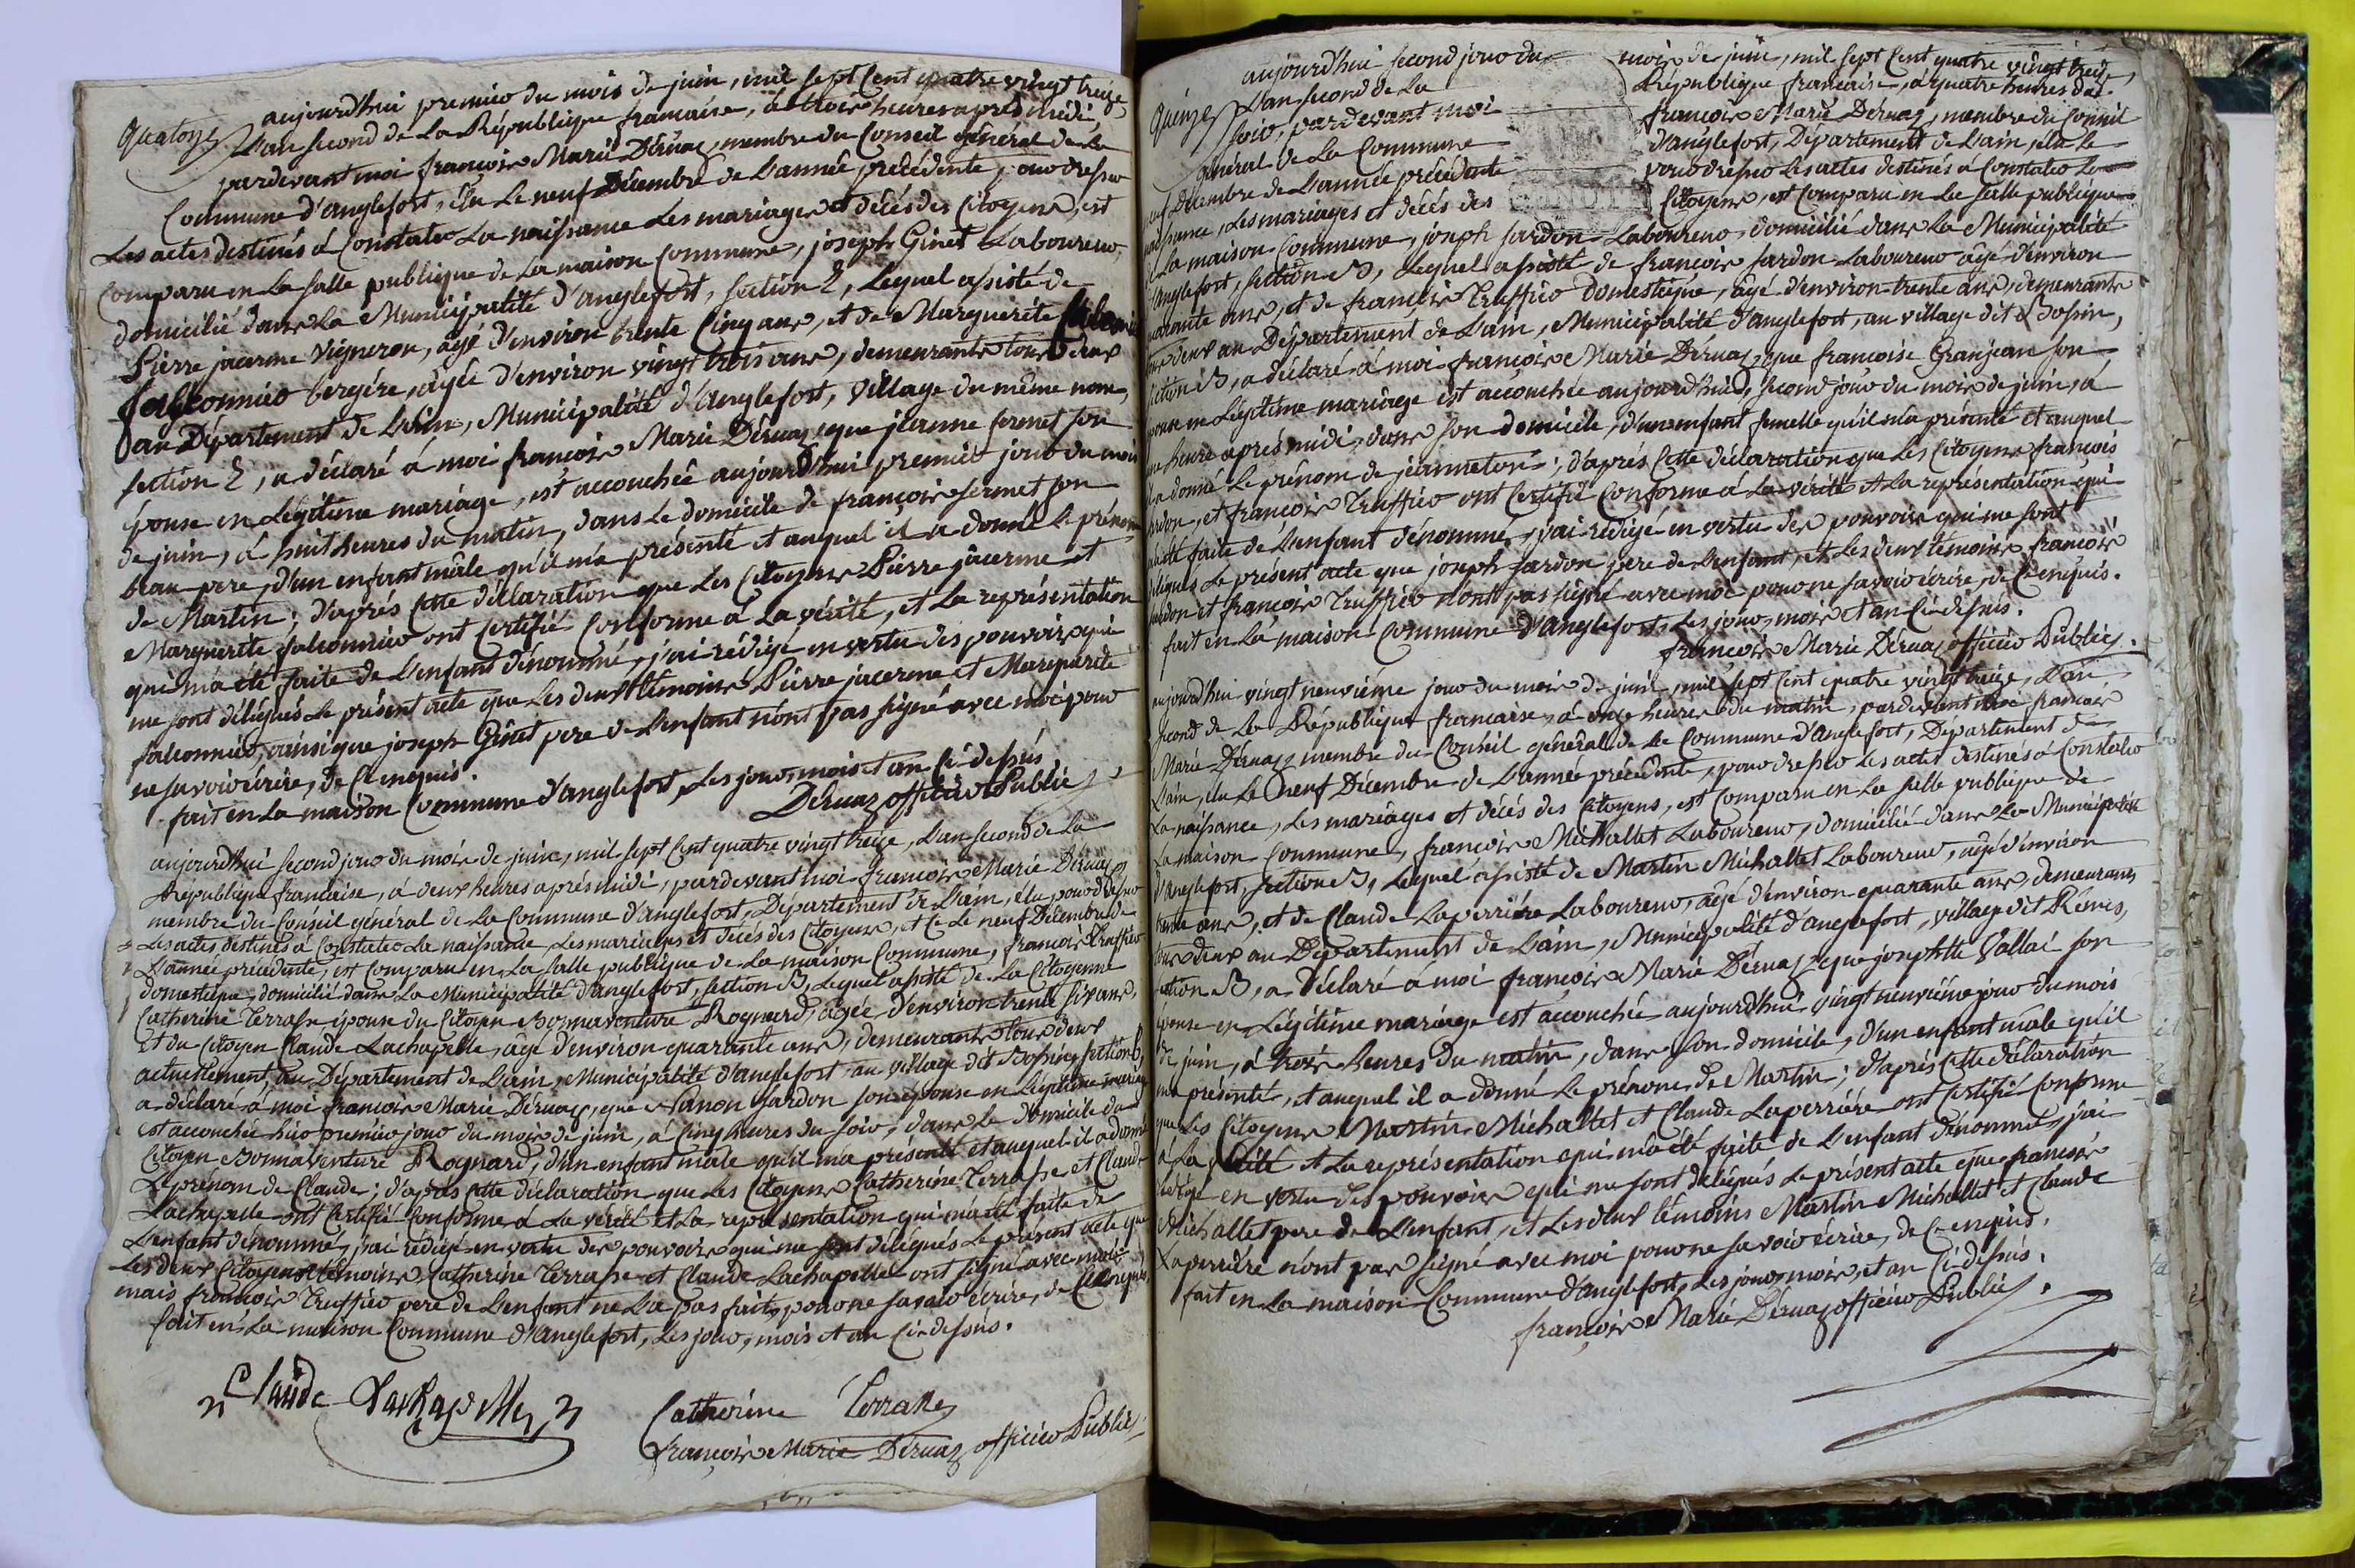 aujourd'hui premier du mois de juin, mil sept Cent quatre vingt treize
quatorze L'an second de La République francaise, à trois heures après midi,
pardevant moi françois Marie Déruaz, membre du Conseil général de La
Commune d'anglefort, élu Le neuf Décembre de L'année précédente, pour dresser
Les actes destinés à Constater La naissance Les mariages et décés des Citoyens, est
Comparu en La salle publique de La maison Commune, joseph Ginet Laboureur,
domicilié dans La Municipalité d'anglefort, section 2, Lequel assisté de
Pierre jacerme Vigneron, âgé d'environ trente Cinq ans, et de Marguerite
falconnier bergére, âgée d'environ vingt trois ans, demeurants tous deux
au Département de L'ain, Municipalité d'anglefort, village du même nom,
section 2, a déclaré à moi françois Marie Déruaz, que jeanne fermet son
épouse en Légitime mariage, est accouchée aujourd'hui premier jour du mois
de juin, à huit heures du matin, dans Le domicile de françois fermet son
beau pere, d'un enfant mâle qu'il m'a présenté et auquel il a donné Le prénom
de Martin; d'après Cette déclaration que Les Citoyens Pierre jacerme et
Marguerite falconnier ont Certifié Conforme à La vérité, et La représentation
qui m'a été faite de L'enfant dénommé, j'ai rédigé en vertu des pouvoirs qui
me sont délégués Le présent acte que Les deux témoins Pierre jacerme et Marguerite
falconnier, ainsi que joseph Ginet pere de L'enfant n'ont pas signé avec moi pour
ne savoir écrire, de Ce enquis.
fait en La maison Commune d'anglefort, Les jour, mois et an Ci-dessus
Déruaz officier Public
aujourd'hui second jour du mois de juin, mil sept Cent quatre vingt treize, L'an second de La
République francaise, à deux heures après midi, pardevant moi françois Marie Déruaz
membre du Conseil général de La Commune d'anglefort, Département de L'ain, élu pour dresser
Les actes destinés à Constater La naissance, Les mariages et décés des Citoyens, et Ce Le neuf Décembre de
L'année précédente, est Comparu en La salle publique de La maison Commune, françois Truffier
domestique, domicilié dans La Municipalité d'anglefort, section B, Lequel assisté de La Citoyenne
Catherine Terrasse épouse du Citoyen Bonnaventure Rognard, âgée d'environ trente six ans,
Et du Citoyen Claude Lachapelle, âgé d'environ quarante ans, demeurants tous deux
actuellement, au Département de L'ain, Municipalité d'anglefort, au village dit Bossin, section B,
a déclaré à moi françois Marie Déruaz, que Nanon Jardon son épouse en Légitime mariage
est accouchée hier premier jour du mois de juin, à Cinq heures du soir, dans Le domicile du
Citoyen Bonnaventure Rognard, d'un enfant mâle qu'il m'a présenté et auquel il a donné
Le prénom de Claude; d'après Cette déclaration que Les Citoyens Catherine Terrasse et Claude
Lachapelle ont Certifié Conforme à La vérité et La représentation qui m'a été faite de
L'enfant dénommé, j'ai rédigé en vertu des pouvoirs qui me sont délégués Le présent acte que
Les deux Citoyens témoins Catherine Terrasse et Claude Lachapelle ont signé avec moi
mais françois Truffier pere de L'enfant ne L'a pas fait, pour ne savoir écrire, de Ce enquis,
fait en La maison Commune d'anglefort, Les jour, mois et an Ci-dessus.
Claude Lachapelle
Catherine Terrasse
françois Marie Déruaz officier Public
aujourd'hui second jour du mois de juin, mil sept Cent quatre vingt treize,
Quinze L'an second de La République francaise, à quatre heures du
soir, pardevant moi françois Marie Déruaz, membre du Conseil
général de La Commune d'anglefort, Département de L'ain, élu Le
neuf Décembre de L'année précédente pour dresser Les actes destinés à Constater La
naissance, Les mariages et décés des Citoyens, est Comparu en La salle publique de
La maison Commune, joseph Jardon Laboureur, domicilié dans La Municipalité
d'anglefort, section B, Lequel assisté de françois Jardon Laboureur âgé d'environ
quarante ans, et de françois Truffier domestique, âgé d'environ trente ans, demeurants
tous deux au Département de L'ain, Municipalité d'anglefort, au village dit Bossin,
section B, a déclaré à moi françois Marie Déruaz, que françoise Granjean son
épouse en Légitime mariage est accouchée aujourd'hui, second jour du mois de juin, à
une heure après midi, dans son domicile, d'un enfant femelle qu'il m'a présenté et auquel
il a donné Le prénom de jeanneton; d'après Cette déclaration que Les Citoyens françois
Jardon, et françois Truffier ont Certifié Conforme à La vérité et La représentation qui
m'a été faite de L'enfant dénommé, j'ai rédigé en vertu des pouvoirs qui me sont
délégués Le présent acte que joseph Jardon pere de L'enfant, et Les deux témoins françois
Jardon et françois Truffier n'ont pas signé avec moi pour ne savoir écrire, de Ce enquis.
fait en La maison Commune d'anglefort, Les jour, mois et an Ci-dessus.
françois Marie Déruaz officier Public.
aujourd'hui vingt neuvième jour du mois de juin, mil sept Cent quatre vingt treize, L'an
second de La République francaise, à onze heures du matin, pardevant moi françois
Marie Déruaz membre du Conseil général de La Commune d'anglefort, Département de
L'ain, élu Le neuf Décembre de L'année précédente, pour dresser Les actes destinés à Constater
La naissance, Les mariages et décés des Citoyens, est Comparu en La salle publique de
La maison Commune, françois Michallet Laboureur, domicilié dans La Municipalité
d'anglefort, section B, Lequel assisté de Martin Michallet Laboureur, âgé d'environ
trente ans, et de Claude Laperriére Laboureur, âgé d'environ quarante ans, demeurants
tous deux au Département de L'ain, Municipalité d'anglefort, village dit
section B, a déclaré à moi françois Marie Déruaz que josephtte Vallai son
épouse en Légitime mariage est accouchée aujourd'hui vingt neuvième jour du mois
de juin, à trois heures du matin, dans son domicile, d'un enfant mâle qu'il
m'a présenté, et auquel il a donné Le prénom de Martin; d'après Cette déclaration
que Les Citoyens Martin Michallet et Claude Laperriére ont Certifié Conforme
à La vérité et La représentation qui m'a été faite de L'enfant dénommé, j'ai
rédigé en vertu des pouvoirs qui me sont délégués Le présent acte que françois
Michallet pere de L'enfant, et Les deux témoins Martin Michallet et Claude
Laperriére n'ont pas signé avec moi pour ne savoir écrire, de Ce enquis.
fait en La maison Commune d'anglefort, Les jour, mois, et an Ci-dessus.
françois Marie Déruaz officier Public.